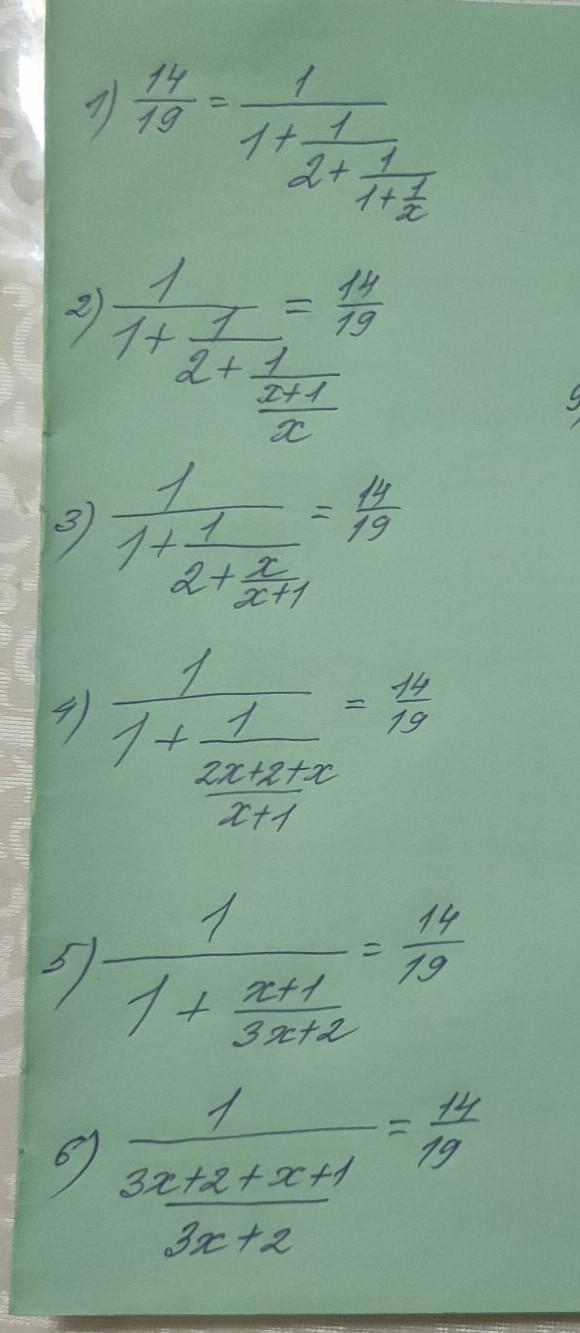 1) 14/19 = 1/(1+1/(2+1/(1+1/x)))
2) 1/(1+1/(2+1/((x+1)/x))) = 14/19
3) 1/(1+1/(2+x/(x+1))) = 14/19
4) 1/(1+1/((2x+2+x)/(x+1))) = 14/19
5) 1/(1+(x+1)/(3x+2)) = 14/19
6) 1/((3x+2+x+1)/(3x+2)) = 14/19